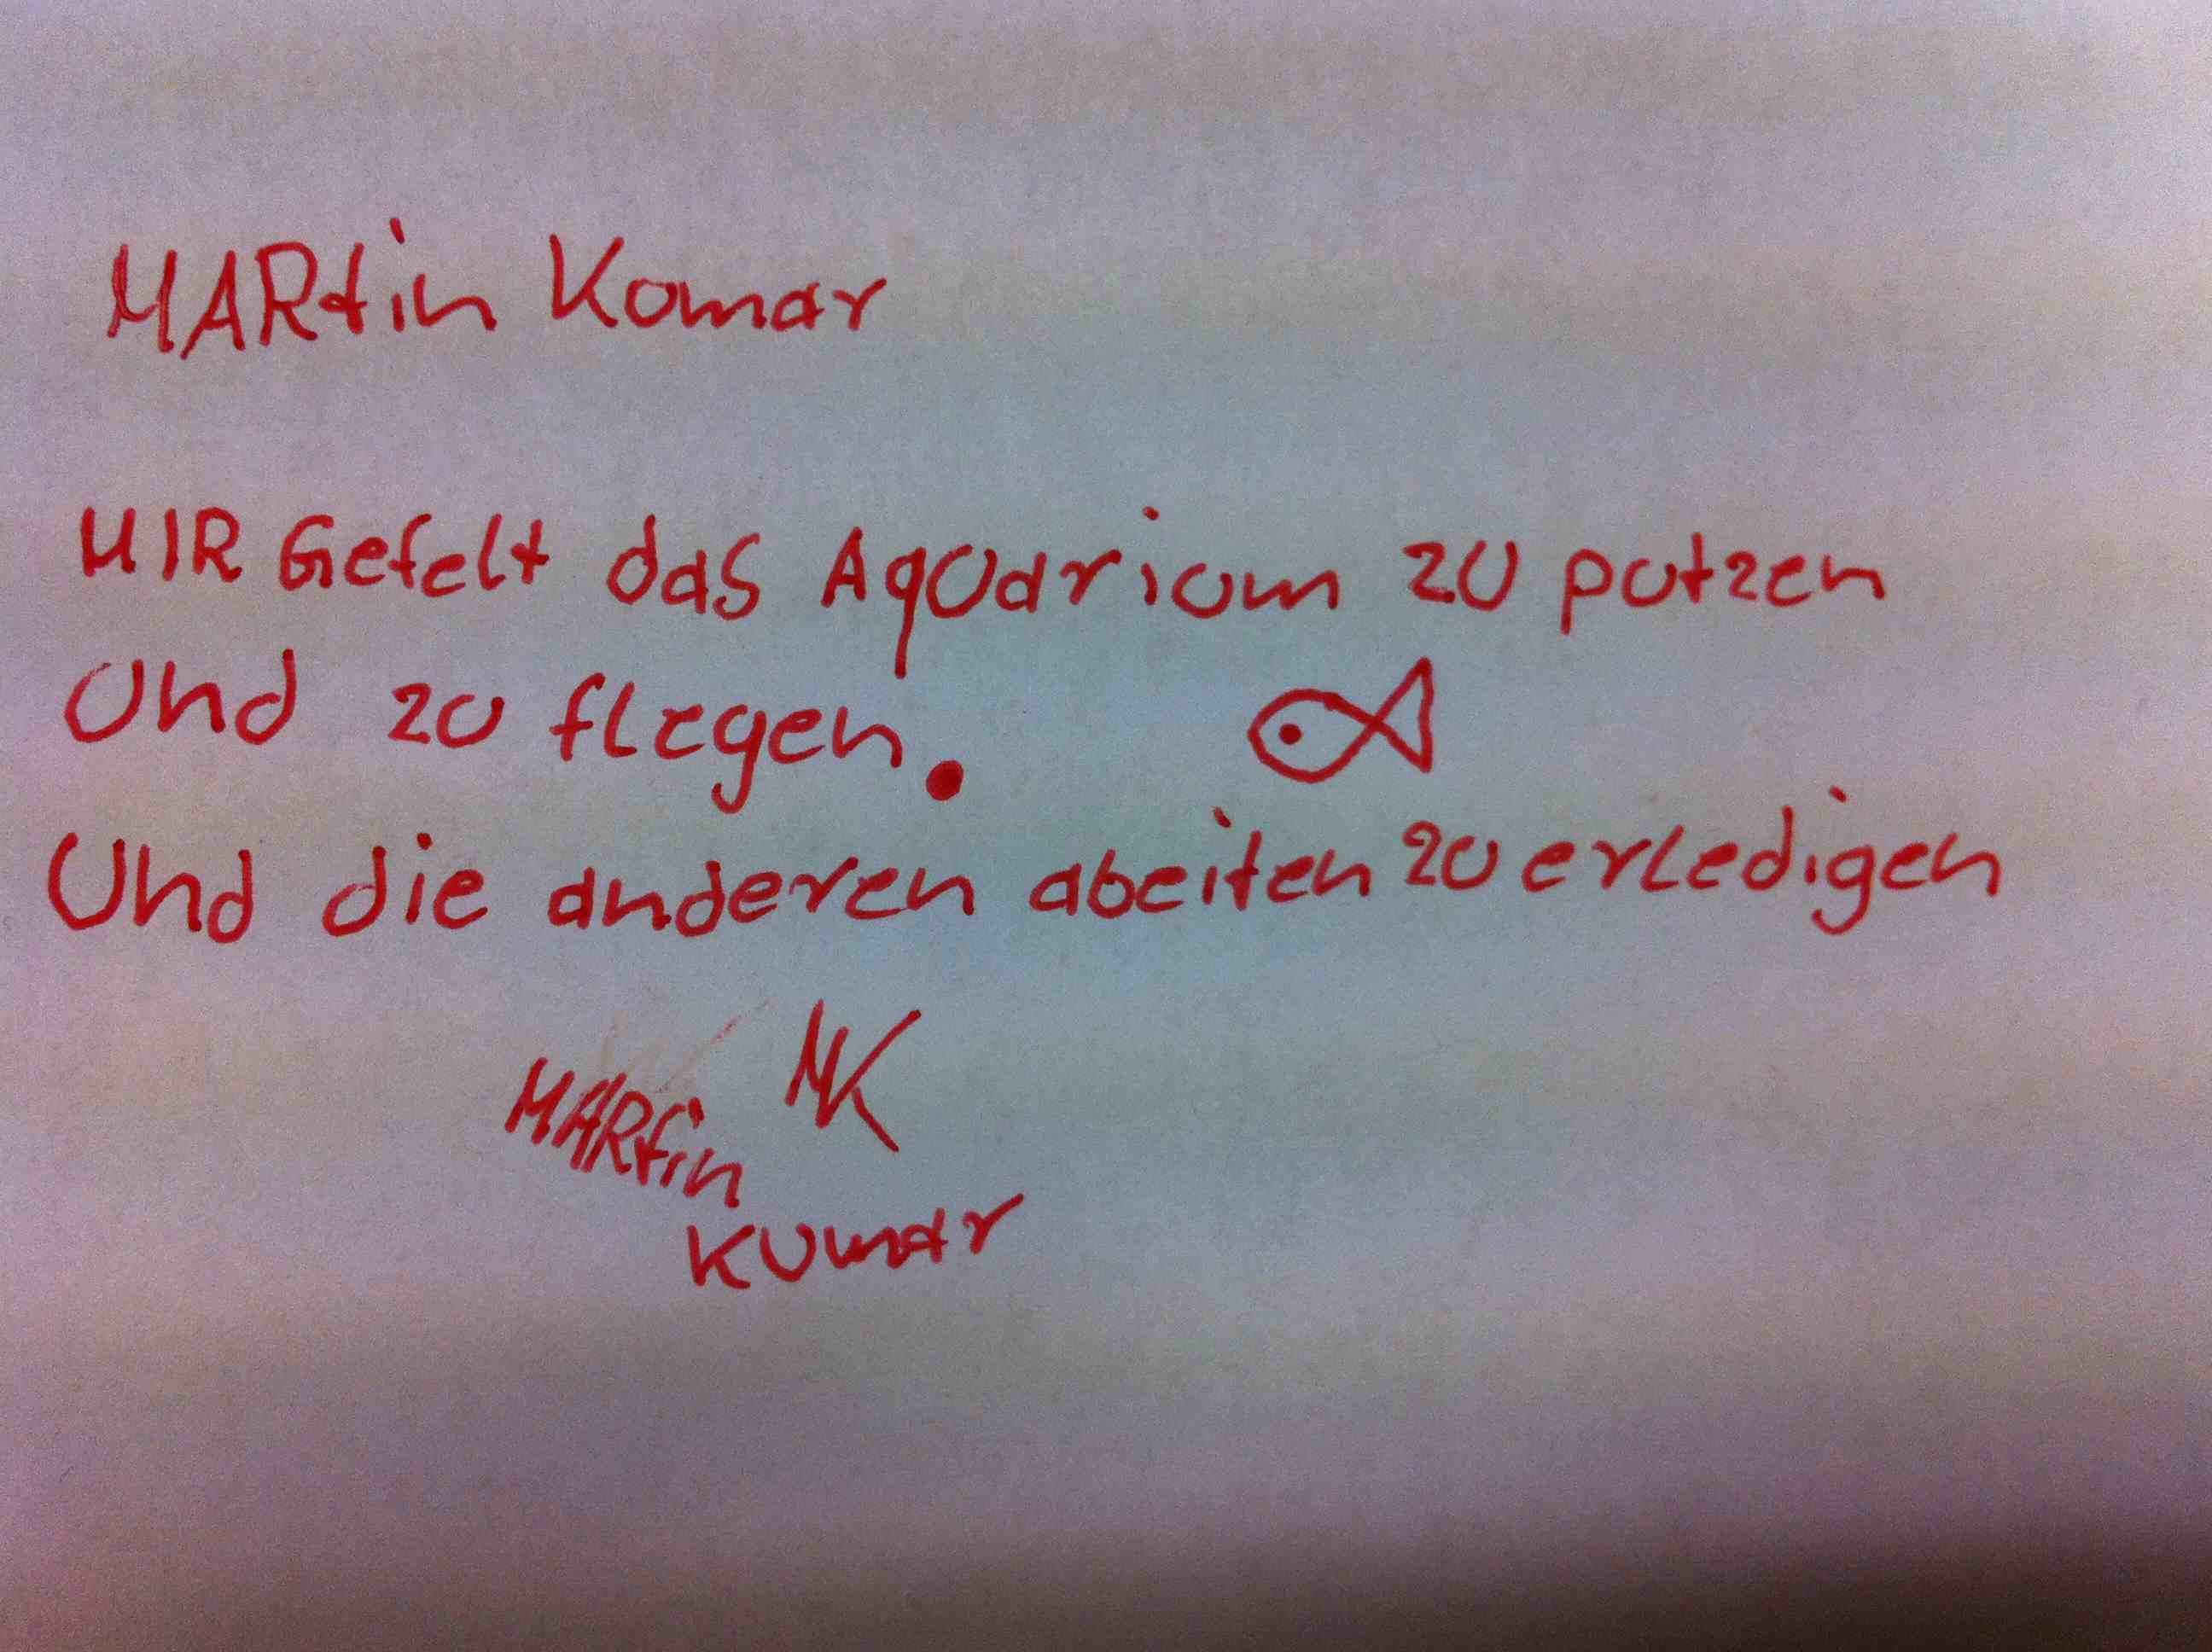 MARtin Kumar
MIR Gefelt das Aquarium zu putzen
Und zu flegen.
Und die anderen abeiten zu erledigen
MK
MARtin
Kumar